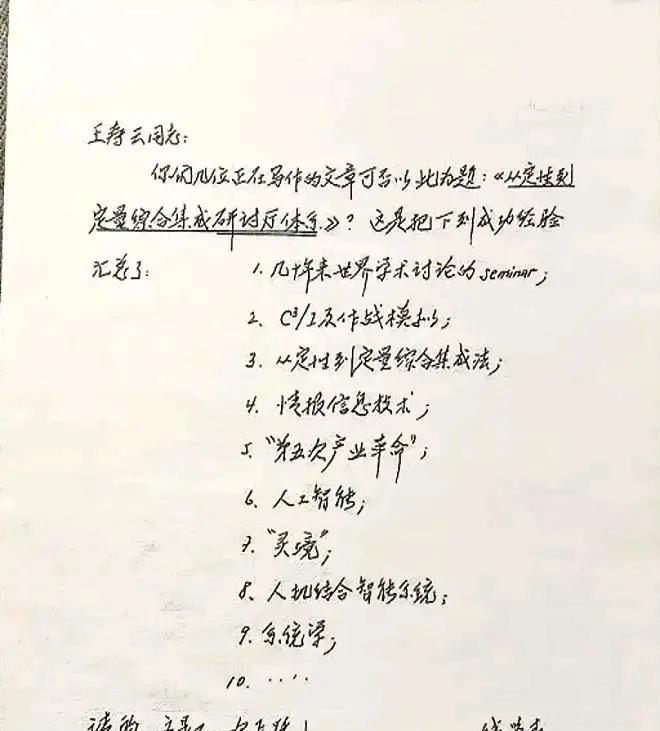 王寿云同志:
你们几位正在写作的文章可否以此为题:《从定性到
定量综合集成研讨厅体系》? 这是把下列成功经验
汇总了:
1. 几十年来世界学术讨论的 seminar;
2. C³I及作战模拟;
3. 从定性到定量综合集成法;
4. 情报信息技术;
5. “第五次产业革命”;
6. 人工智能;
7. “灵境”;
8. 人机结合智能系统;
9. 系统学;
10. ……